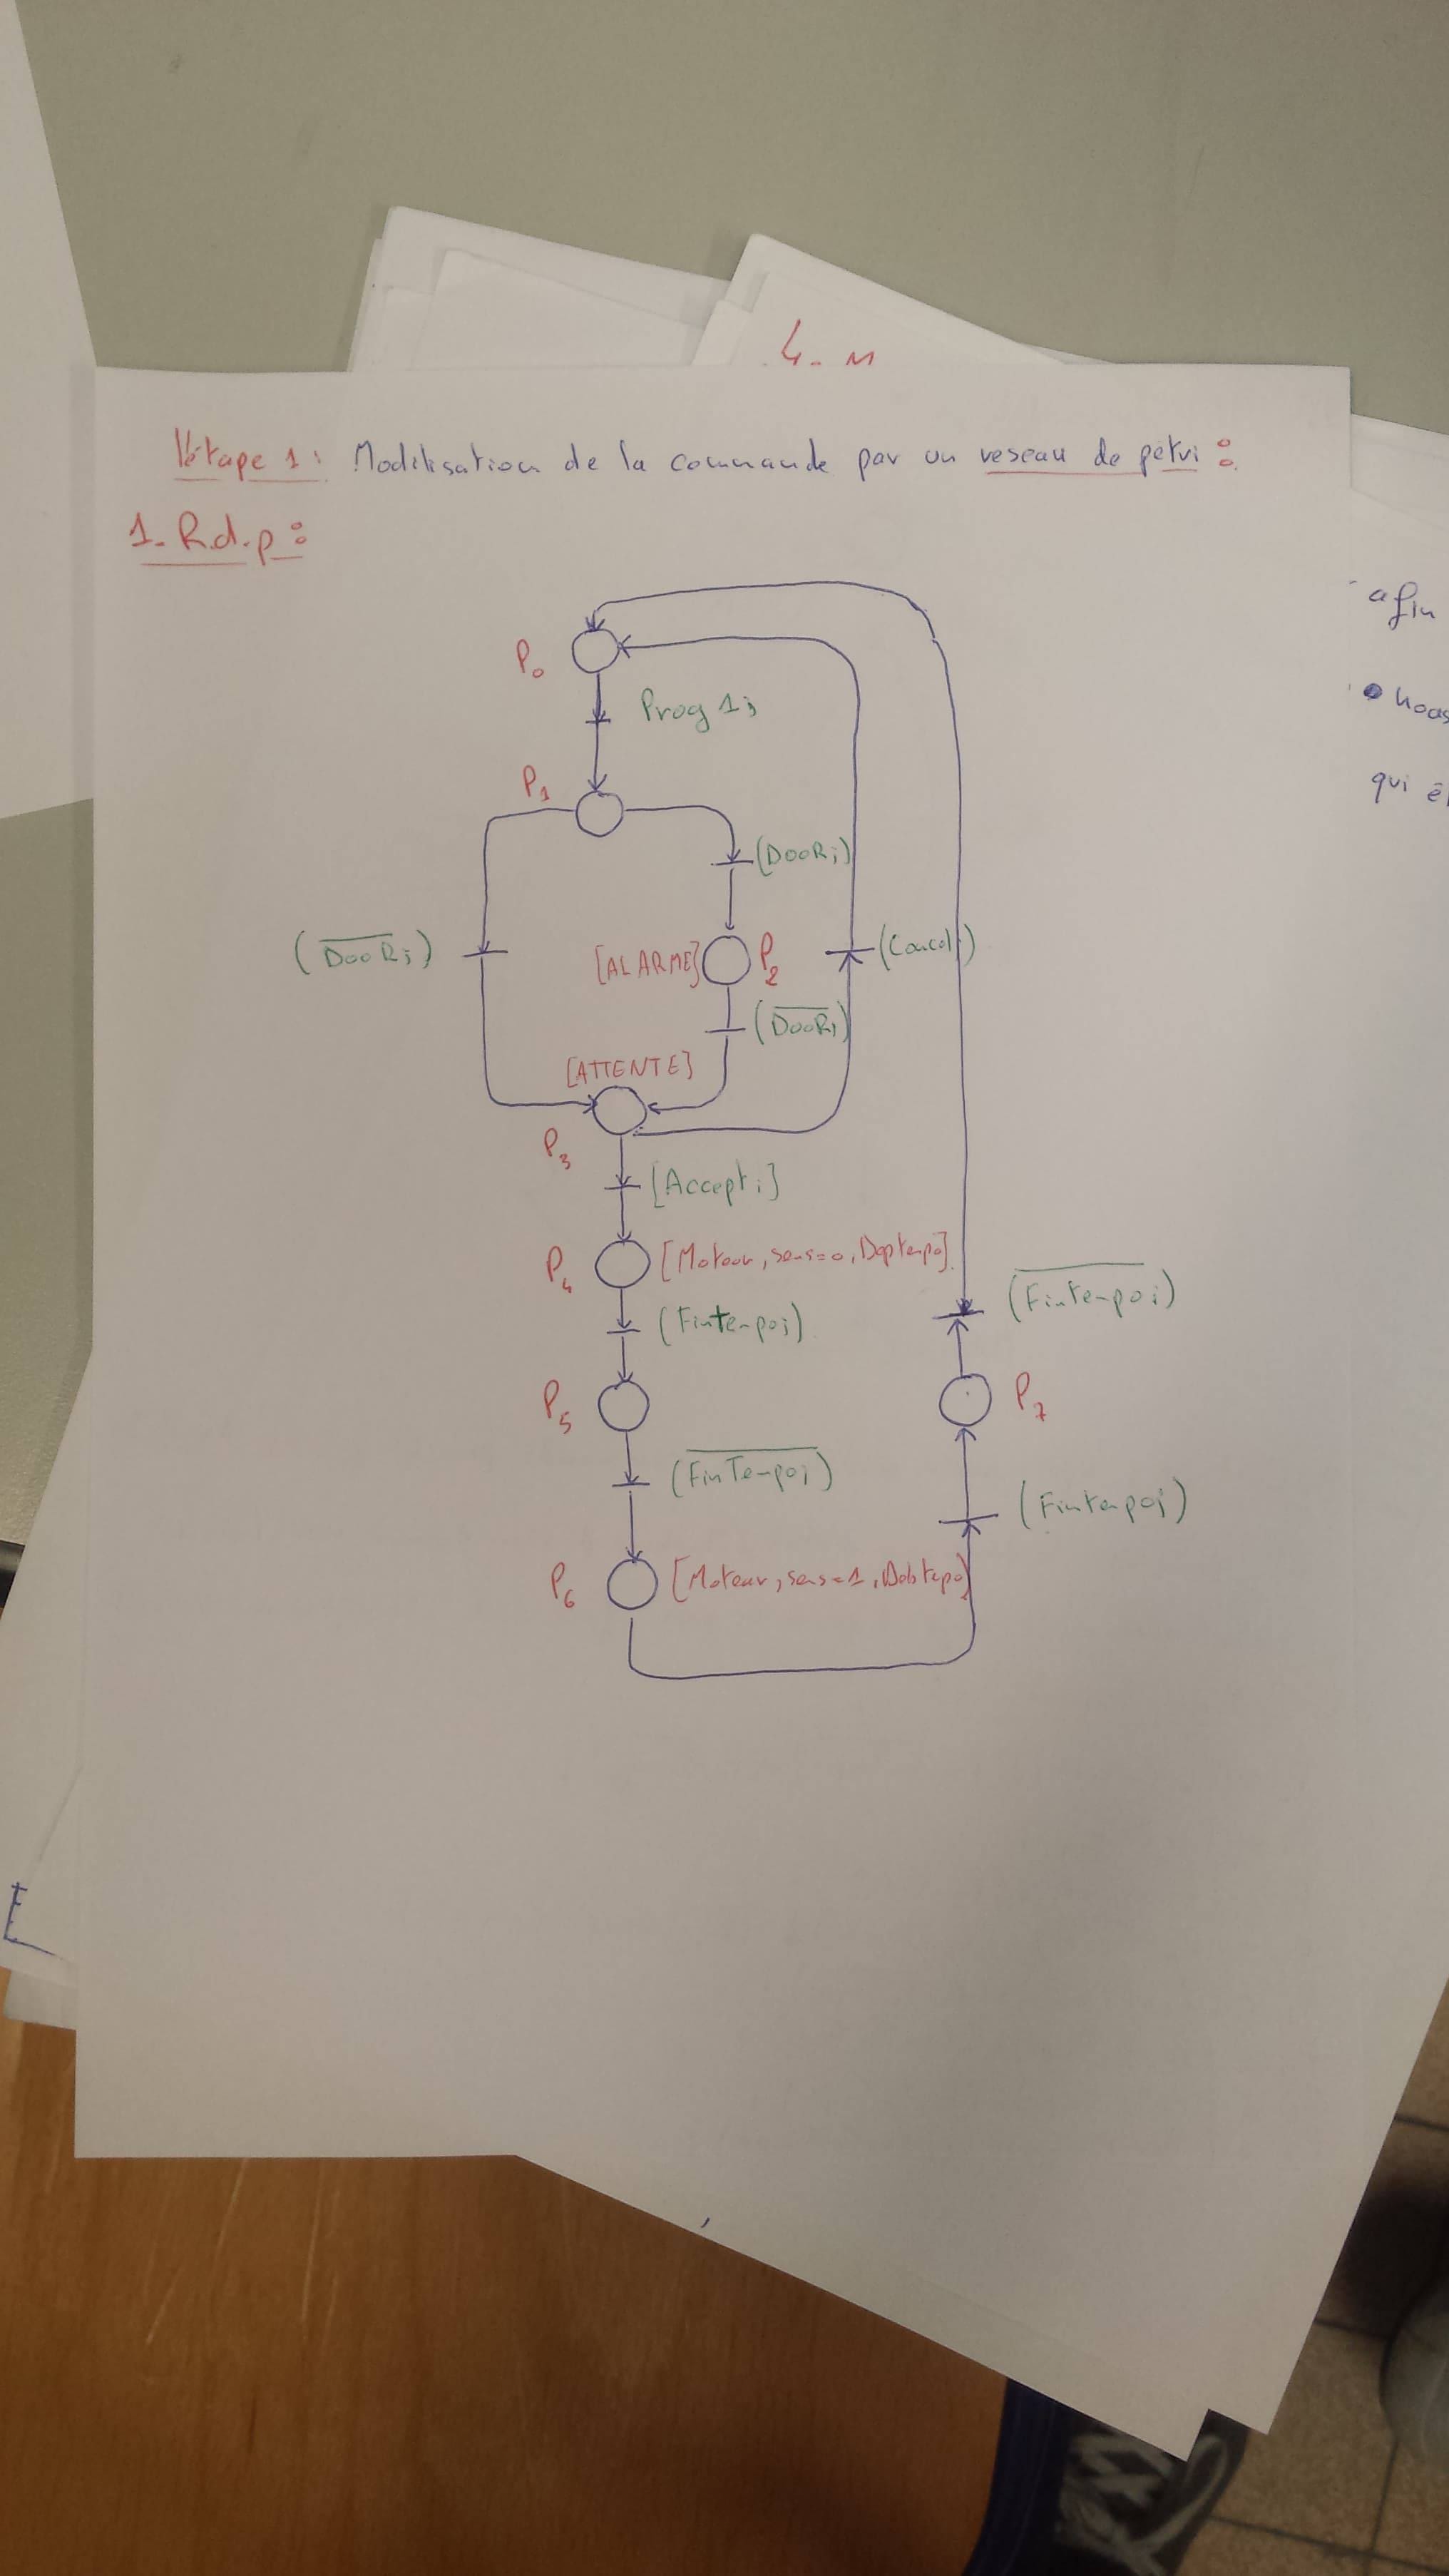 4- м
l'étape 1: Modilisation de la commande par un reseau de pétri :
1- R.d.p :
afin
P0
Prog 1i
• nous
P1
qui
(DOORi)
(D̅O̅O̅R̅i)
[ALARME] P2
(Cancel)
(D̅O̅O̅R̅i)
[ATTENTE]
P3
[Accept i]
P4 [Moteur, sens=0, Deptempo]
(Fintempoi)
(F̅i̅n̅t̅e̅m̅p̅o̅i)
P5
P7
(F̅i̅n̅T̅e̅m̅p̅o̅i)
(Fintempoi)
P6 [Moteur, sens=1, Debtepo]
E